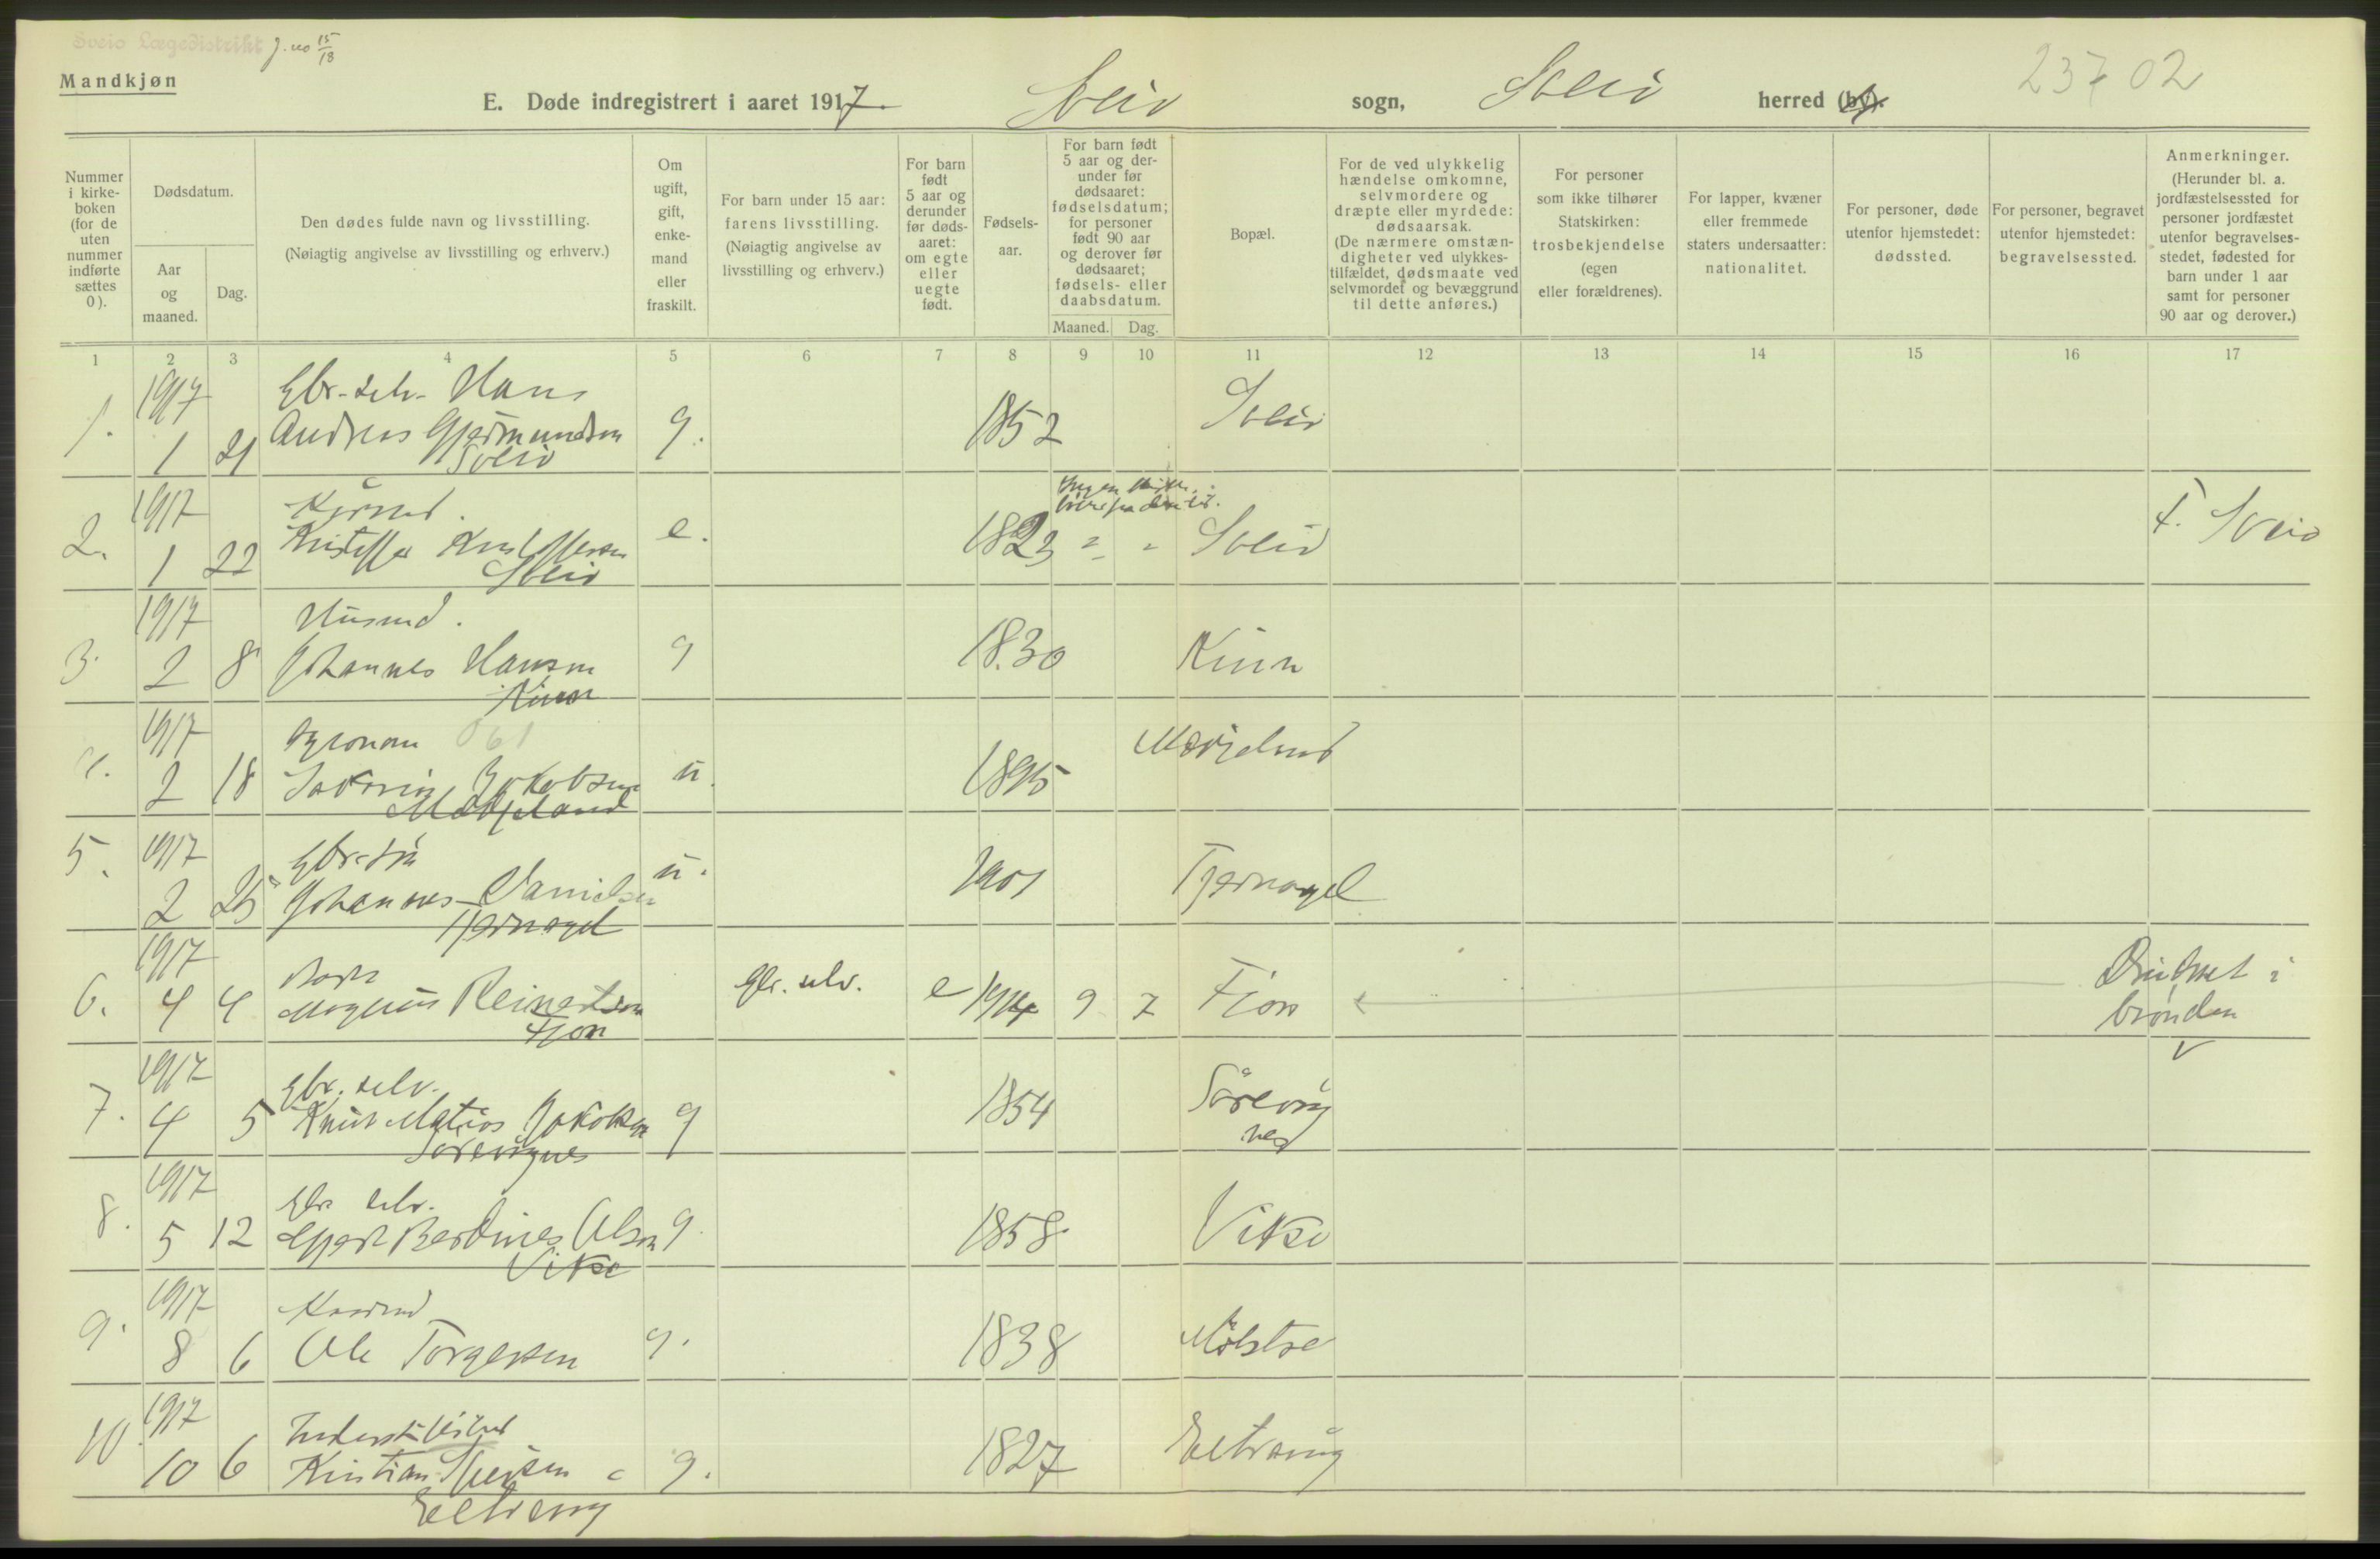 Sveio Lægedistrikt J. no 15/18
23702
Mandkjøn
E. Døde indregistrert i aaret 1917. Sveio sogn, Sveio herred (by).
Nummer i kirke-boken (for de uten nummer indførte sættes 0).
Dødsdatum.
Aar og maaned.
Dag.
Den dødes fulde navn og livsstilling.
(Nøiagtig angivelse av livsstilling og erhverv.)
Om ugift, gift, enke-mand eller fraskilt.
For barn under 15 aar: farens livsstilling.
(Nøiagtig angivelse av livsstilling og erhverv.)
For barn født 5 aar og derunder før døds-aaret: om egte eller uegte født.
Fødsels-aar.
For barn født 5 aar og der-under før dødsaaret: fødselsdatum; for personer født 90 aar og derover før dødsaaret; fødsels- eller daabsdatum.
Maaned. Dag.
Bopæl.
For de ved ulykkelig hændelse omkomne, selvmordere og dræpte eller myrdede: dødsaarsak.
(De nærmere omstæn-digheter ved ulykkes-tilfældet, dødsmaate ved selvmordet og bevæggrund til dette anføres.)
For personer som ikke tilhører Statskirken: trosbekjendelse (egen eller forældrenes).
For lapper, kvæner eller fremmede staters undersaatter: nationalitet.
For personer, døde utenfor hjemstedet: dødssted.
For personer, begravet utenfor hjemstedet: begravelsessted.
Anmerkninger.
(Herunder bl. a. jordfæstelsessted for personer jordfæstet utenfor begravelses-stedet, fødested for barn under 1 aar samt for personer 90 aar og derover.)
1 2 3 4 5 6 7 8 9 10 11 12 13 14 15 16 17
1917 Gbr-selv. Hans
1. 1 21 Andreas Gjermundsen g. 1852 Sveio
Sveio
1917 Kårmd.
2. 1 22 Kristoffer Kristoffersen e. 1823 " " Sveio F. Sveio
Sveio
1917 Husmd.
3. 2 8 Johannes Hansen g 1830 Kinn
Kinn
1917 Agronom 061
4. 2 18 Jakobsen u. 1895
5. 1917 Gbr-søn
2 25 Johannes Danielsen u. 1901 Tjernagel
Tjernagel
1917 Barn
6. 4 4 Magnus Reinertsen Gbr. selv. e 1914 9 7 Fjon Druknet i brønden
Fjon
1917 Gbr. selv.
7. 4 5 Knut Matias Jakobsen g 1854 Sørevågnes
Sørevågnes
1917 Gbr selv.
8. 5 12 Gjert Berdines Olsen g. 1858 Vikse
Vikse
1917 Kaarmd
9. 8 6 Ole Torgersen g. 1838
1917 Inderst
10. 10 6 Kristian g. 1827 Eltravåg
Eltravåg